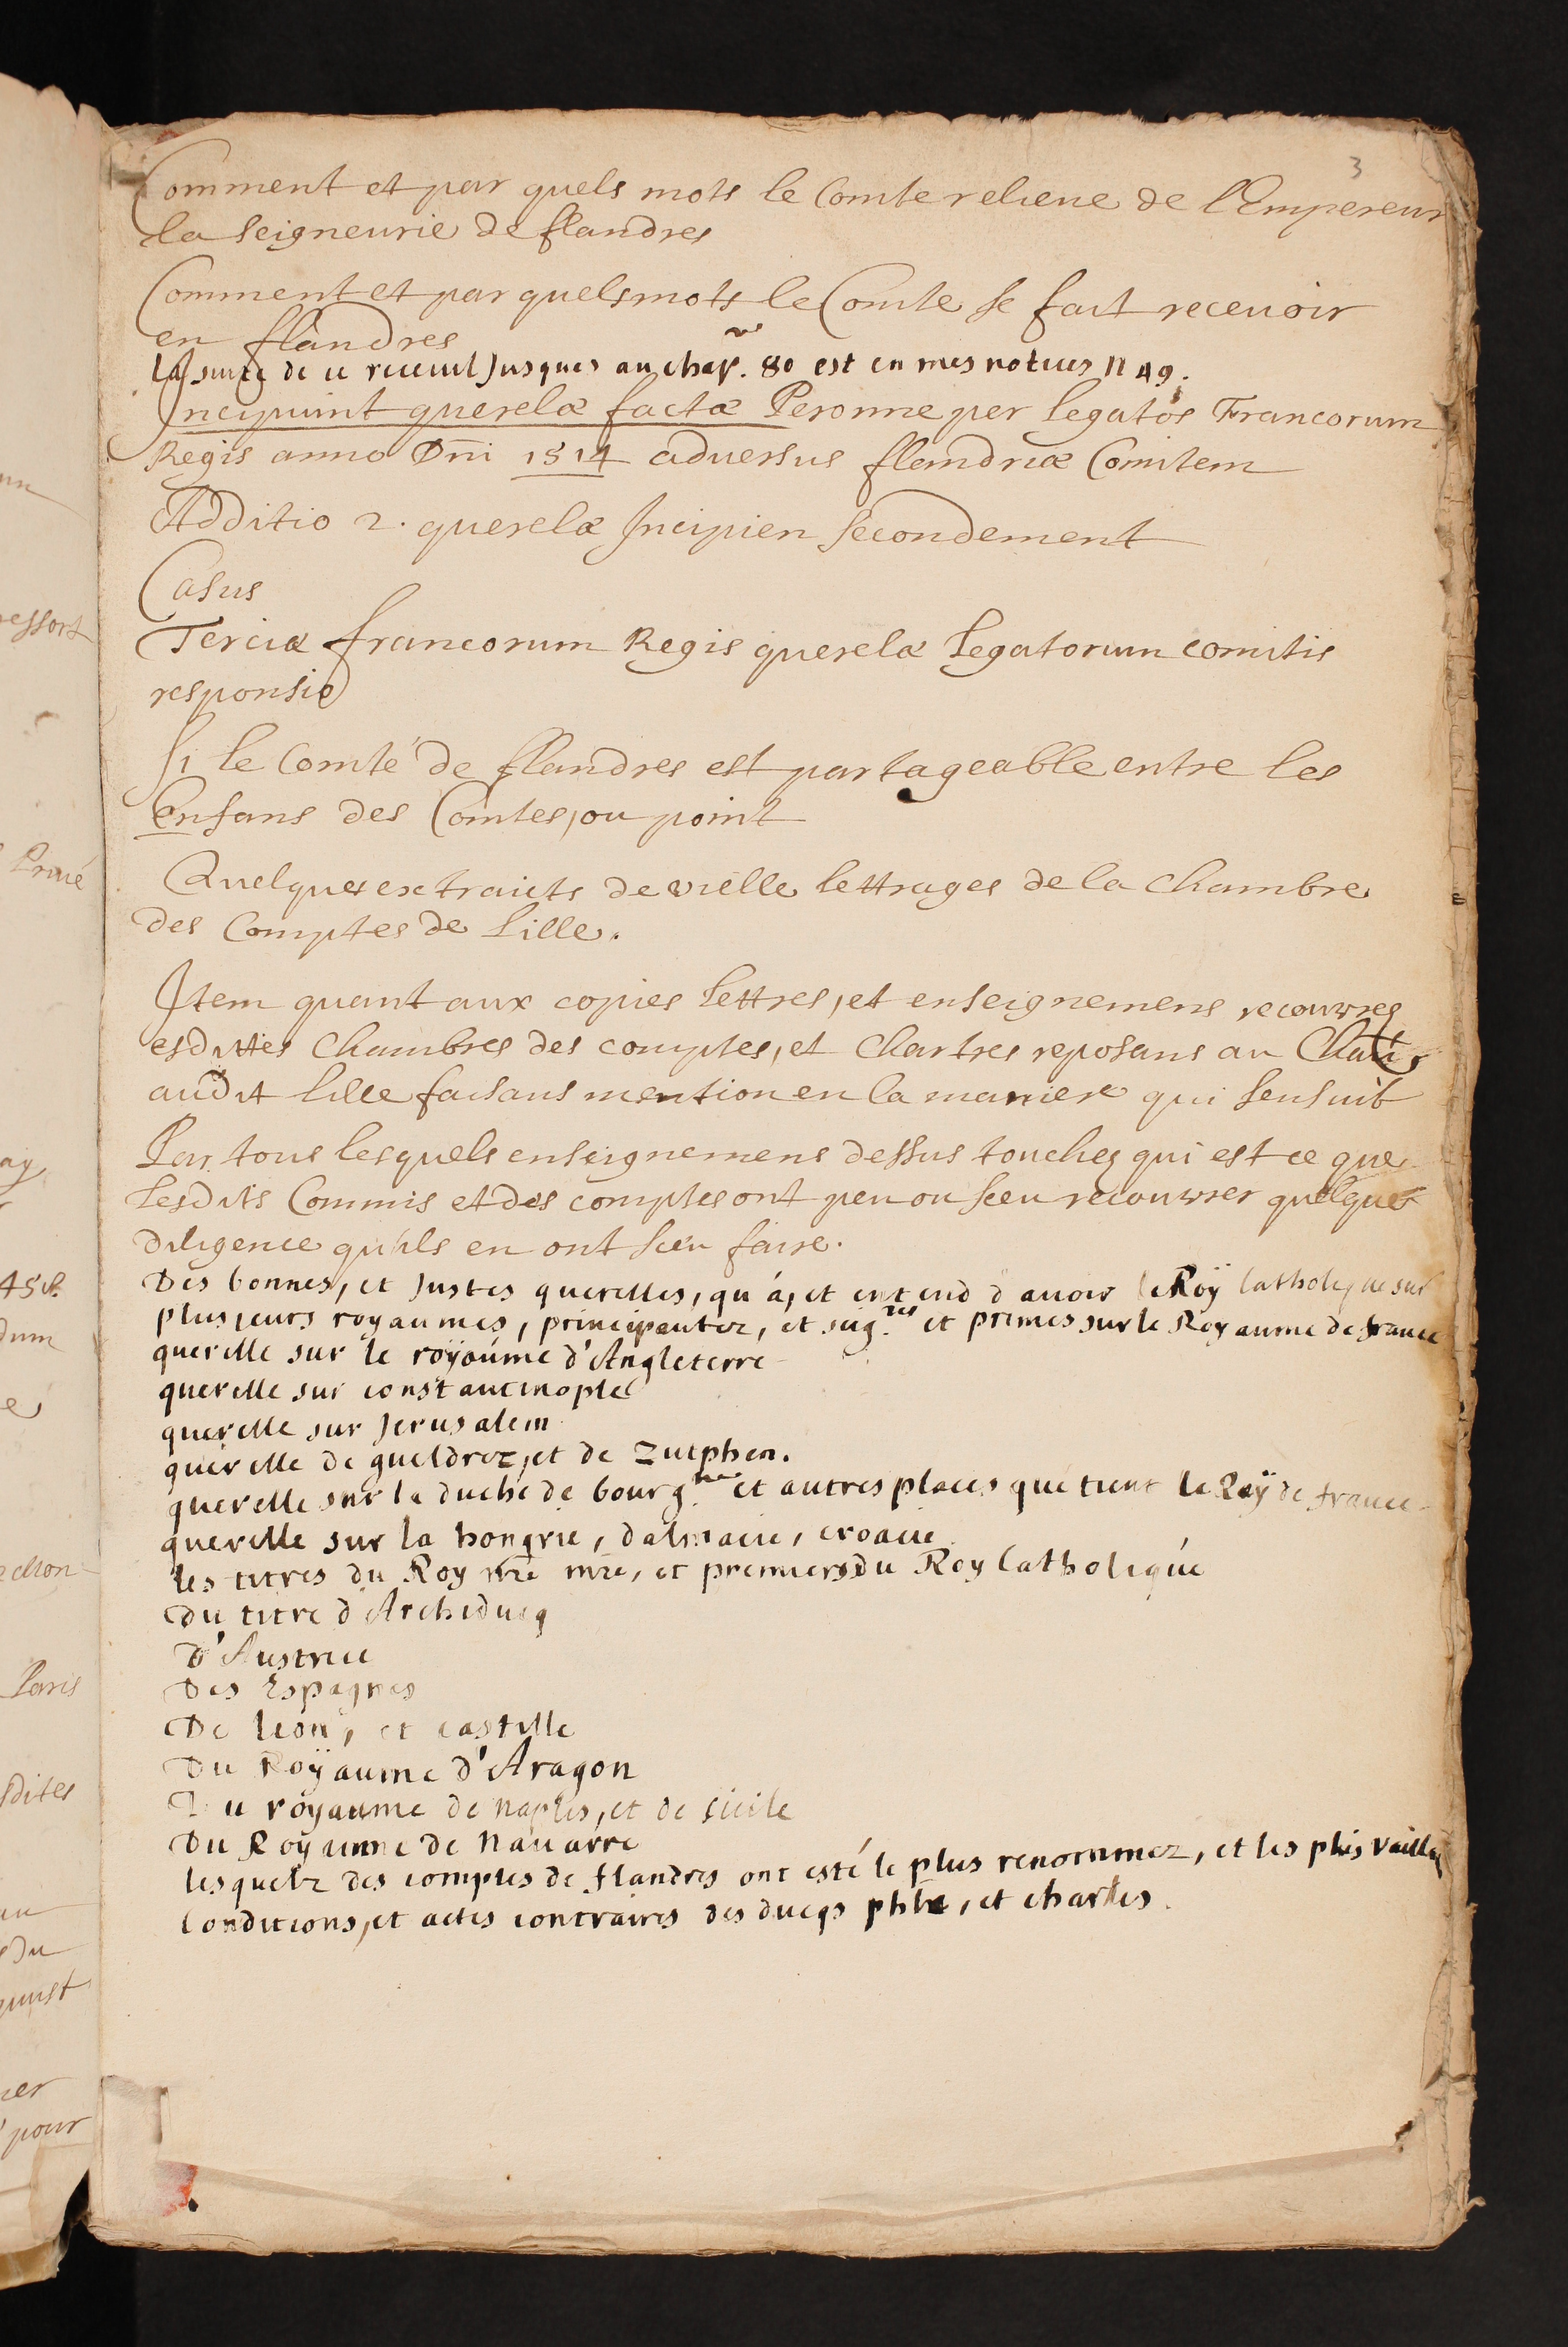 3
Comment et par quels mots le Comte relieue de l'Empereur
la seigneurie de flandres
Comment et par quels mots le Comte se fait receuoir
en flandres
la suite de ce receuil Jusques au chap. 80 est en mes notices n 49.
Incipiunt querelæ factæ Peronne per legatos Francorum
Regis anno Dni 1514 aduersus flandriæ Comitem
Additio 2. querelæ Incipien secondement
Casus
Terciæ francorum Regis querelæ legatorum comitis
responsio
Si le Comté de flandres est partageable entre les
Enfans des Comtes, ou point
Quelques extraicts de vielle lettrages de la Chambre
des Comptes de Lille.
Item quant aux copies lettres, et enseignemens recouvres
esdittes Chambres des comptes, et Chartres reposans au
audit Lille faisans mention en la maniere qui sensuit
Par tous lesquels enseignemens dessus touchez qui est ce que
Lesdits Commis et des comptes ont peu ou sceu recouvrer quelque
diligence qu'ils en ont sceu faire.
Des bonnes, et Justes querelles, qu'á, et entend d'auoir le Roÿ Catholique sur
plusieurs royaumes, principautez, et seig.res et primes sur le Royaume de france
querelle sur le roÿaúme d'Angleterre
querelle sur constantinople
querelle sur Jerusalem
querelle de gueldrez, et de Zutphen.
querelle sur la duché de bourg.ne et autres places que tient le Roÿ de france
querelle sur la hongrie, dalmacie, croacie
les titres du Roy nre mre, et premiers du Roy Catholique
Du titre d'Archiducq
D'Austrice
Des Espagnes
De león, et castille
Du Roÿaume d'Aragon
Du royaume de naples, et de sicile
Du Roÿaume de nauarre
lesquelz des comptes de flandres ont esté le plus renommez, et les plus
Conditions, et actes contraires des ducqs phle, et charles.